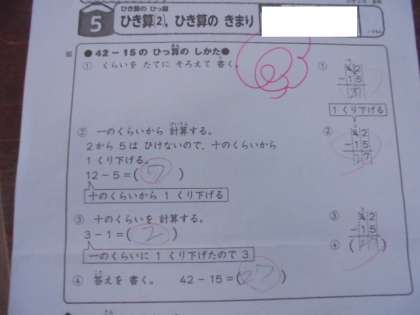 ひき算の ひっ算
5 ひき算(2), ひき算の きまり
●42－15の ひっ算の しかた●
① くらいを たてに そろえて 書く。
② 一のくらいから 計算する。
2から 5は ひけないので, 十のくらいから
1くり下げる。
12－5＝( 7 )
十のくらいから 1 くり下げる
③ 十のくらいを 計算する。
3－1＝( 2 )
一のくらいに 1 くり下げたので 3
④ 答えを 書く。 42－15＝( 27 )
①
42
－15
1くり下げる
②
42
－15
7
③
42
－15
④ ( 27 )